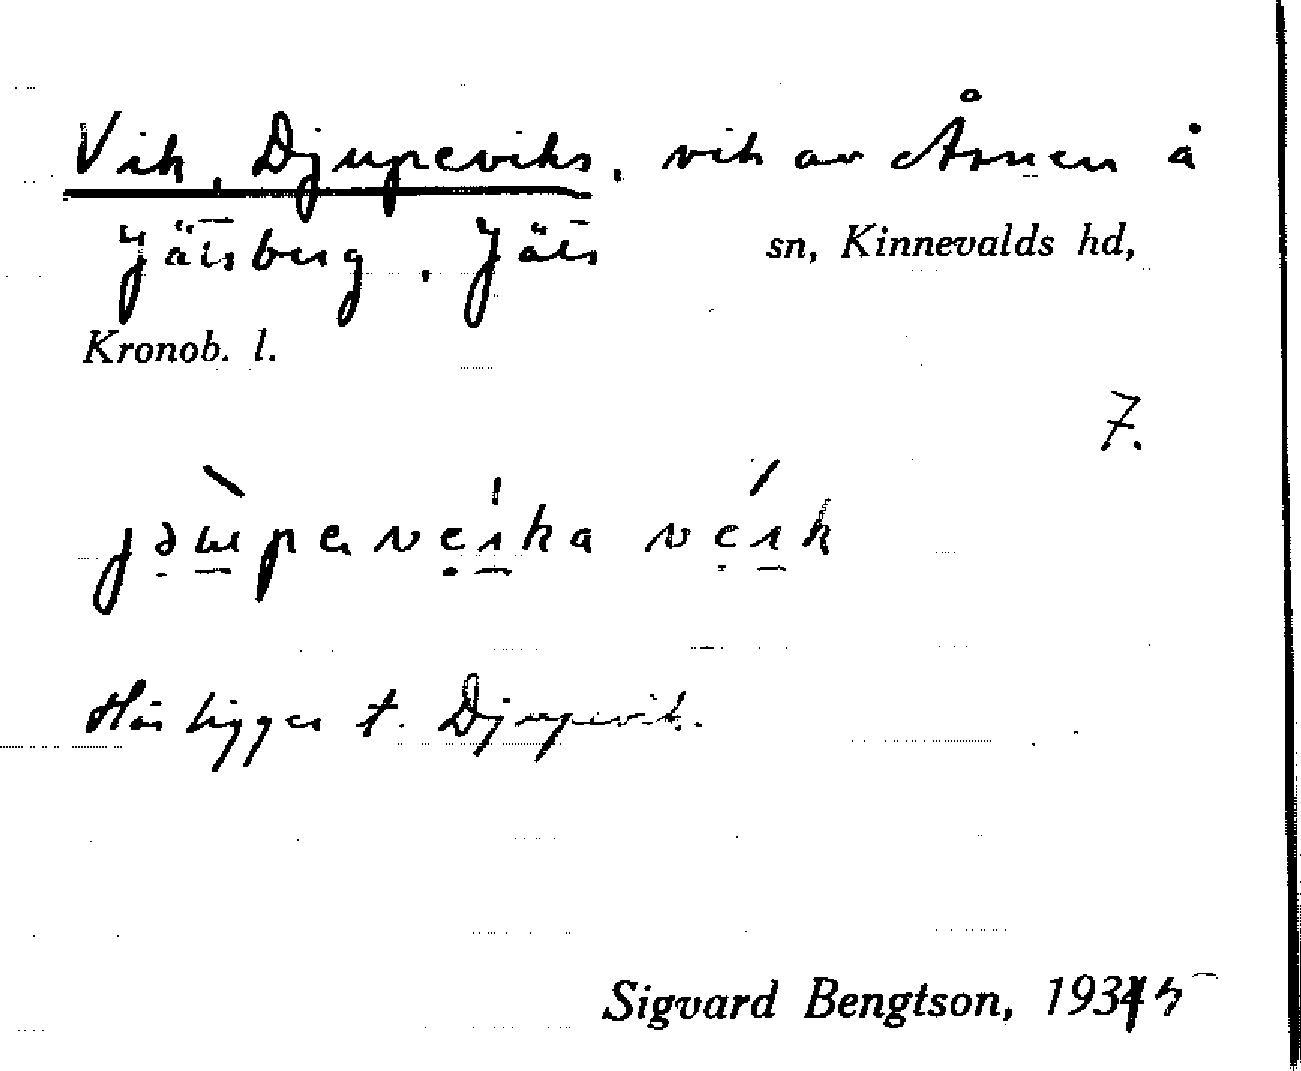 Vik, Djupeviks, vik av Åsnen å
Jätsberg, Jäts sn, Kinnevalds hd,
Kronob. l.
7.
Här ligger t. Djupevik.
Sigvard Bengtson, 1934 5